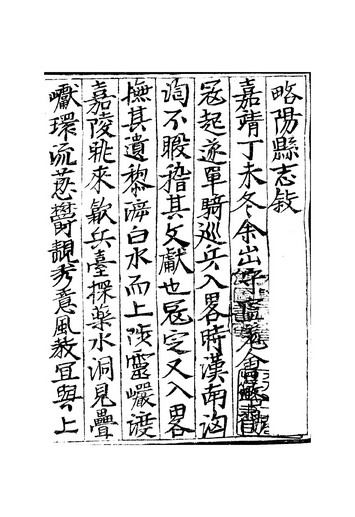 略陽縣志敘
嘉靖丁未冬余出守
冦起遂單騎巡兵入畧時漢南洶
洶不暇稽其文獻也冦定又入畧
撫其遺黎游白水而上陟靈巖渡
嘉陵眺來歙兵臺探藥水洞見疊
巘環流葱欝靚秀意風教宜與上